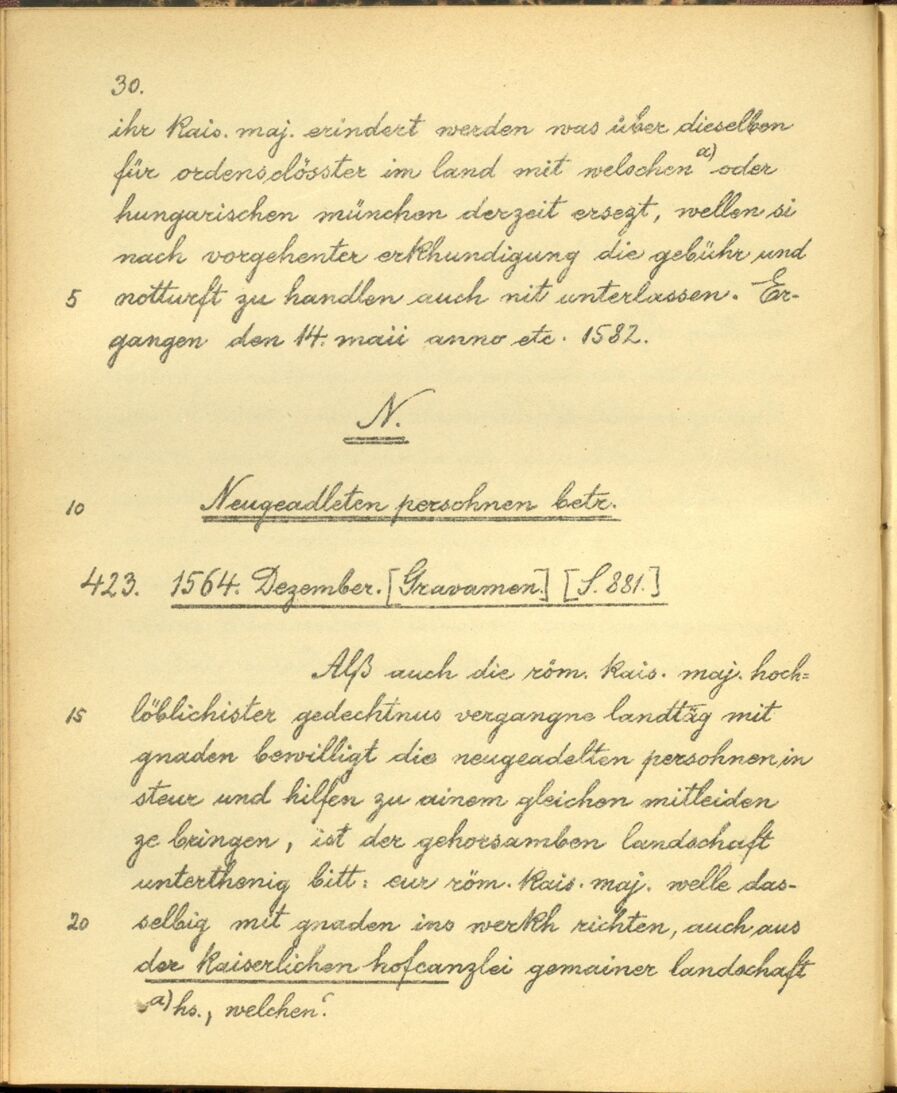 30.
ihr Kais. maj. erindert werden was über dieselben
für ordensclösster im land mit welschen a) oder
hungarischen münchen derzeit ersezt, wellen si
nach vorgehenter erkhundigung die gebühr und
5 notturft zu handlen auch nit unterlassen. Er-
gangen den 14. maii anno etc. 1582.
N.
10 Neugeadleten persohnen betr.
423. 1564. Dezember. [Gravamen] [S. 881.]
Alß auch die röm. Kais. maj. hoch=
15 löblichister gedechtnus vergangne landtäg mit
gnaden bewilligt die neugeadelten persohnen in
steur und hilfen zu ainem gleichen mitleiden
ze bringen, ist der gehorsamben landschaft
unterthenig bitt: eur röm. Kais. maj. welle das-
20 selbig mit gnaden ins werkh richten, auch aus
der Kaiserlichen hofcanzlei gemainer landschaft
a) hs., welchen.'